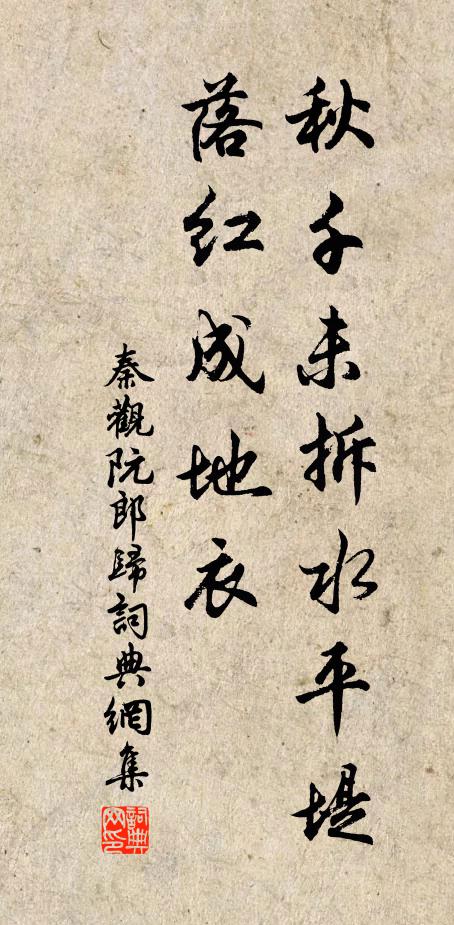 秋千未拆水平堤
落红成地衣
秦觀阮郎歸詞典網集
詞典网印